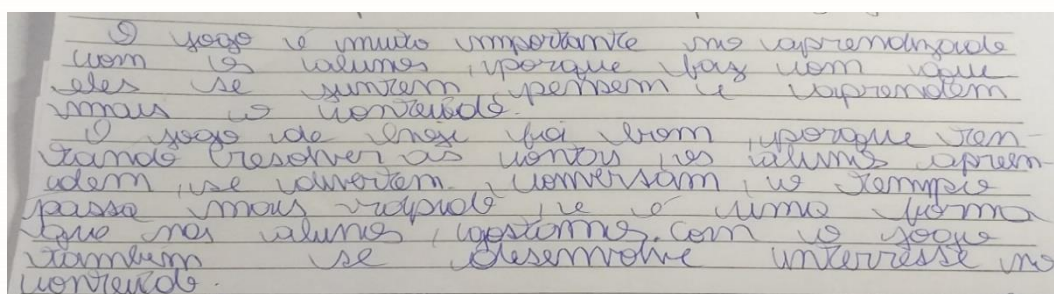 O jogo é muito importante no aprendizado
com os alunos, porque faz com que
eles se juntem, pensem e aprendem
mais o conteúdo.
O jogo de hoje foi bom, porque ten-
tando resolver as contas, os alunos apren
dem, se divertem, conversam, o tempo
passa mais rápido, e é uma forma
que nos alunos, gostamos, com o jogo
também se desenvolve interresse no
conteúdo.